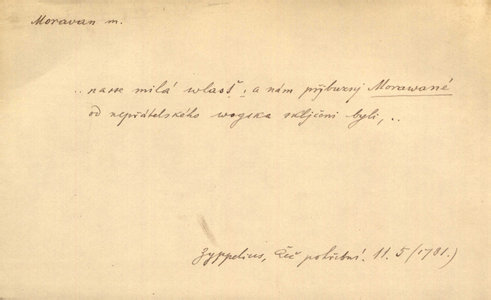 Moravan m.
..nasse milá wlasť, a nám přjbuznj Morawané
od nepřátelského wogska skljčeni byli,..
Zyppelius, Řeč pohřební. 11. 5/1701.)